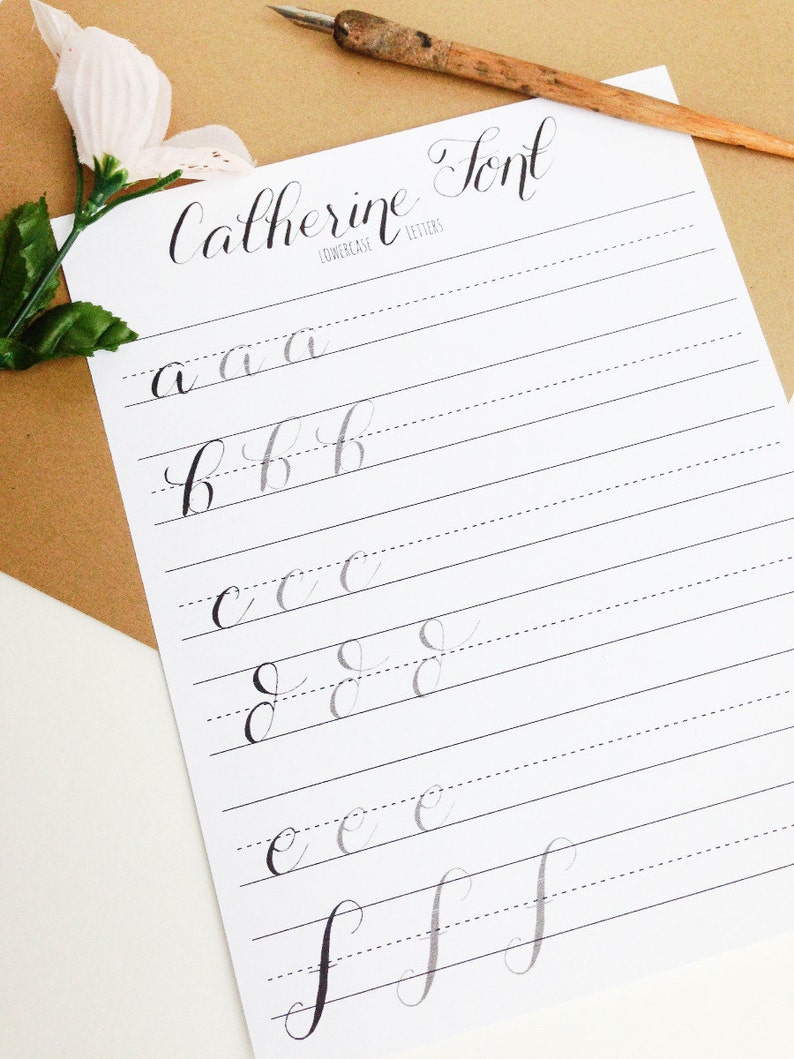 Catherine Font
LOWERCASE LETTERS
a a a
b b b
c c c
d d d
e e e
f f f